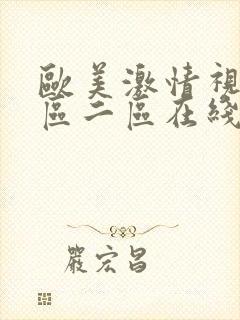 歐美激情視
區二區在綫
嚴宏昌